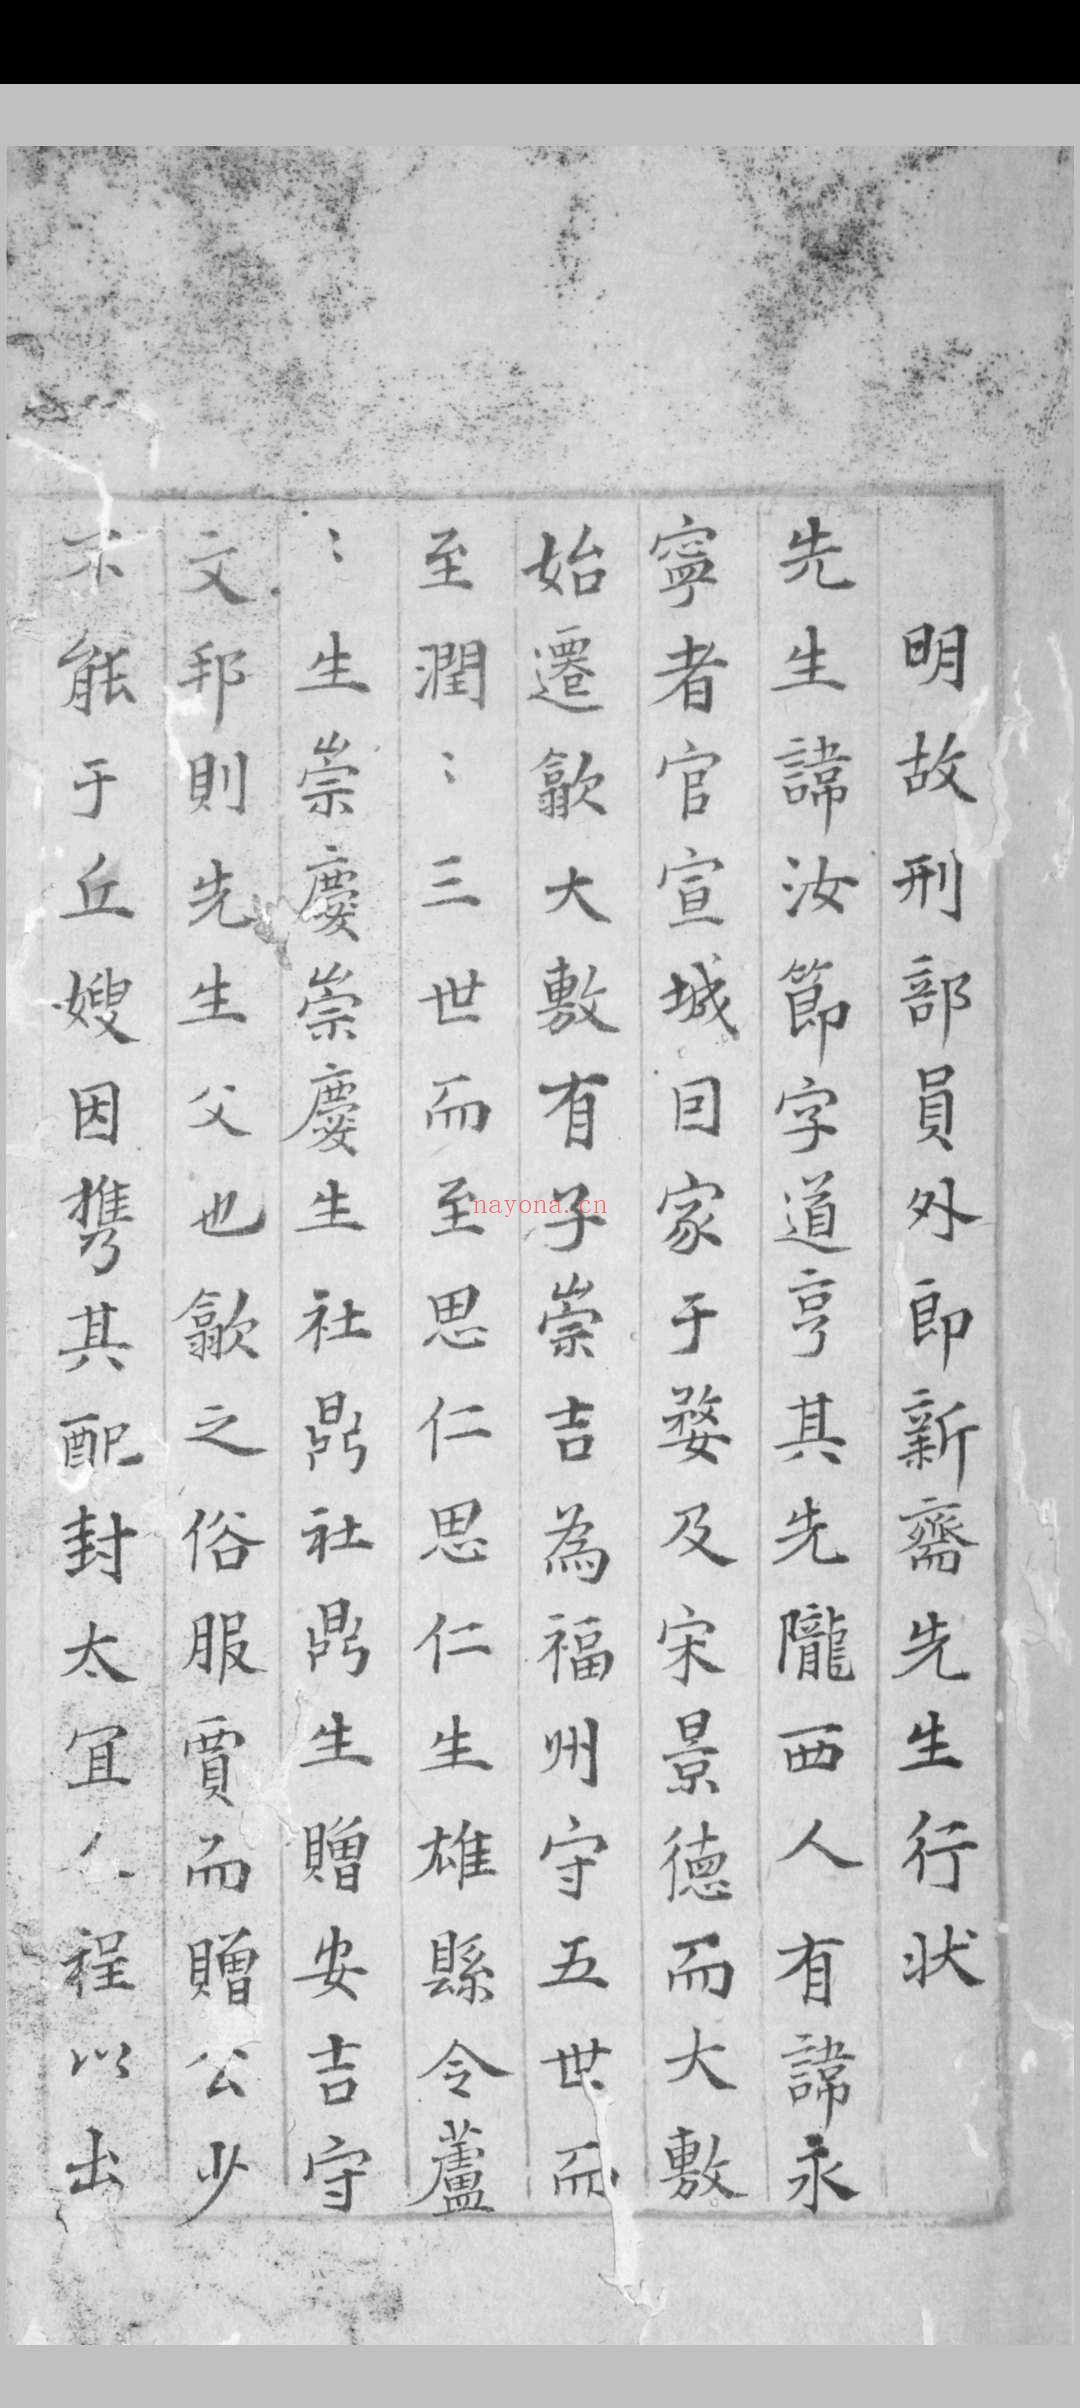 明故刑部員外郎新齋先生行状
先生諱汝節字道亨其先隴西人有諱永
寧者官宣城囙家于婺及宋景德而大敷
始遷歙大敷有子崇吉為福州守五世而
至潤〻三世而至思仁思仁生雄縣令蘆
〻生崇慶崇慶生社鼎社鼎生贈安吉守
文邦則先生父也歙之俗服賈而贈公少
不能于丘嫂因携其配封太宜人程以出
nayona.cn